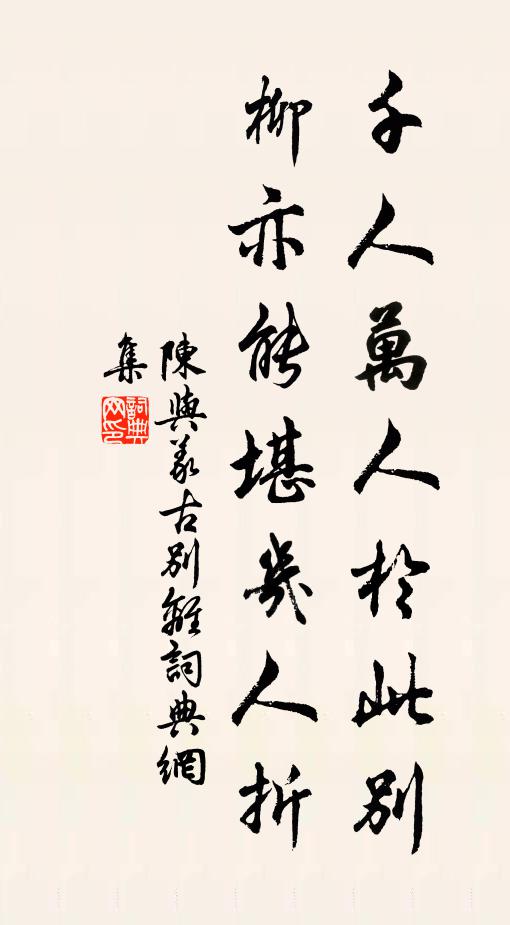 千人萬人於此別
柳亦能堪幾人折
陳與義古別離詞典網
集
詞典網印